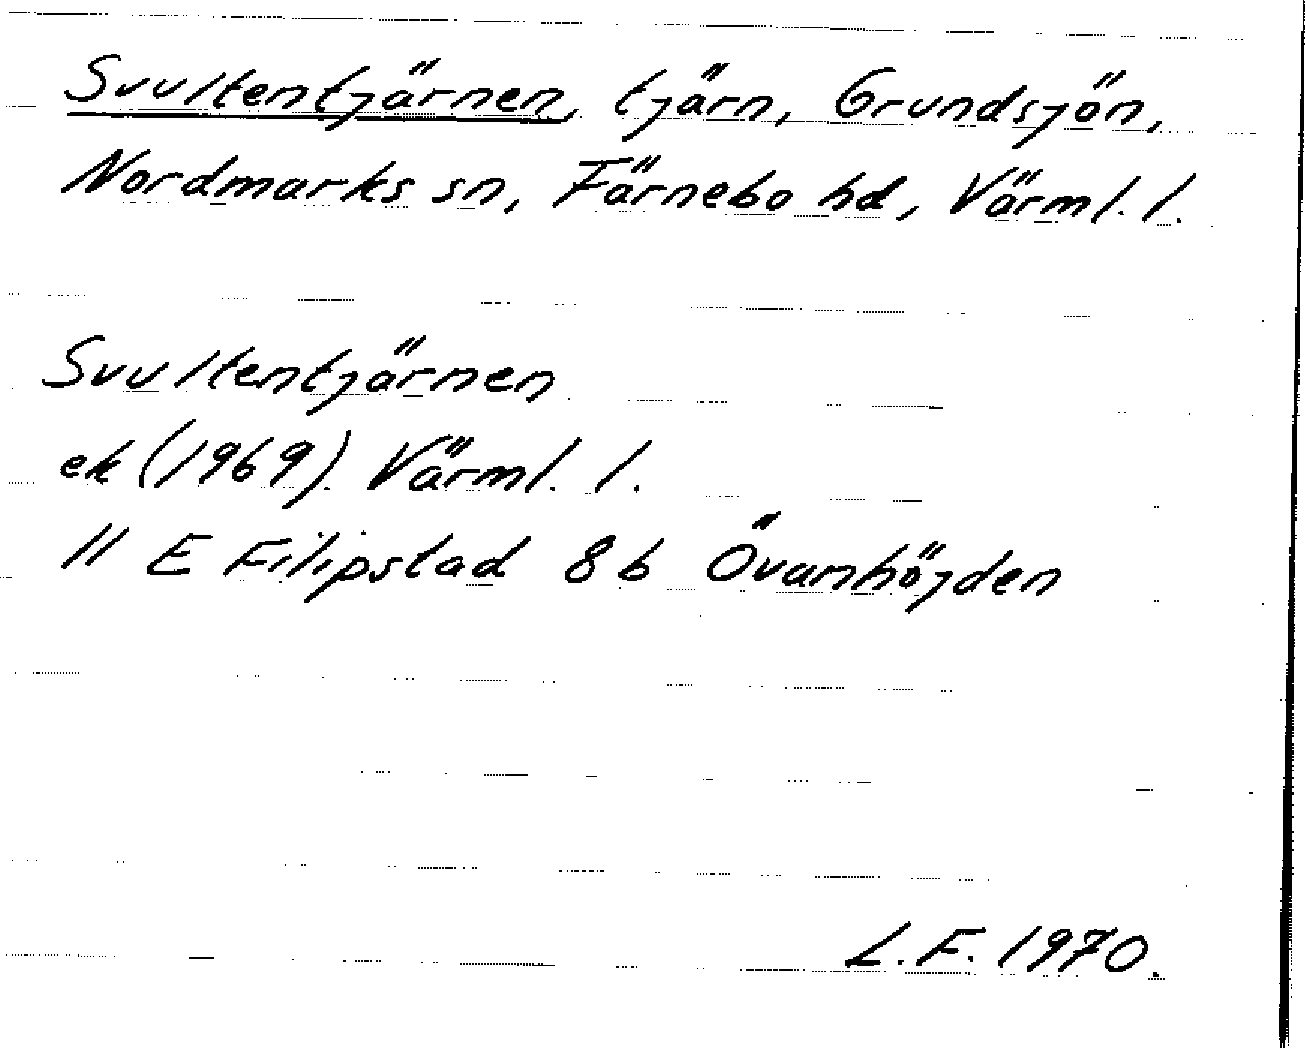 Svultentjärnen, tjärn, Grundsjön,
Nordmarks sn, Färnebo hd, Värml. l.
Svultentjärnen
ek (1969) Värml. l.
11 E Filipstad 8 b Övanhöjden
L.F. 1970.